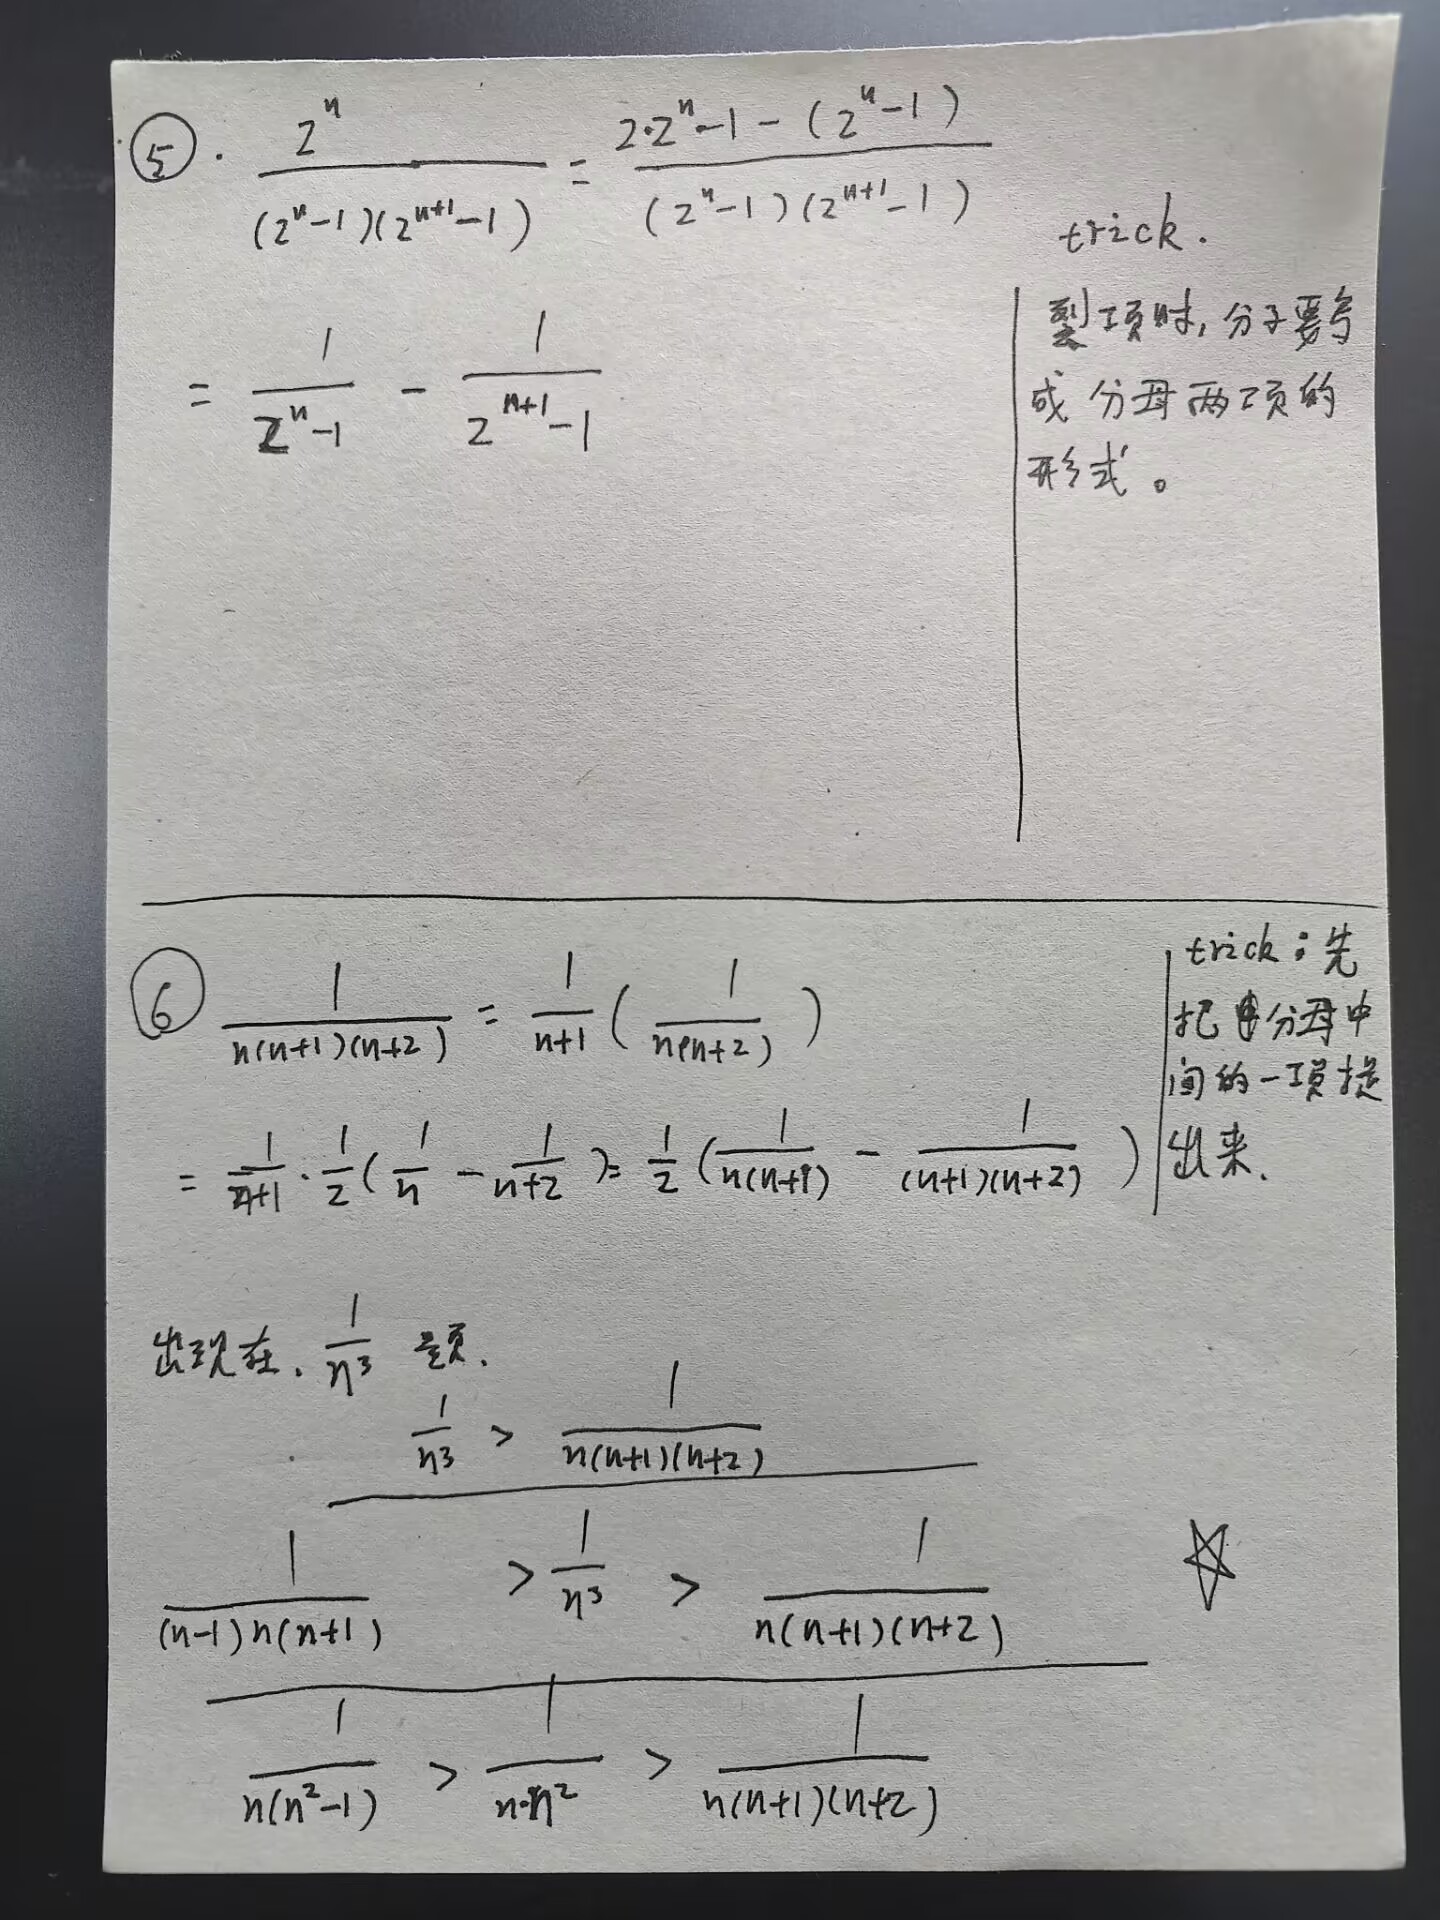 ⑤. 2^n / ((2^n-1)(2^{n+1}-1)) = (2·2^n-1-(2^n-1)) / ((2^n-1)(2^{n+1}-1))
= 1/(2^n-1) - 1/(2^{n+1}-1)
trick.
裂项时,分子要写
成分母两项的
形式。
⑥ 1/(n(n+1)(n+2)) = 1/(n+1) (1/(n(n+2)))
= 1/(n+1)·1/2(1/n - 1/(n+2)) = 1/2(1/(n(n+1)) - 1/((n+1)(n+2)))
trick:先
把分母中
间的一项提
出来.
出现在. 1/n³ 题.
1/n³ > 1/(n(n+1)(n+2))
1/((n-1)n(n+1)) > 1/n³ > 1/(n(n+1)(n+2))
1/(n(n²-1)) > 1/(n·n²) > 1/(n(n+1)(n+2))